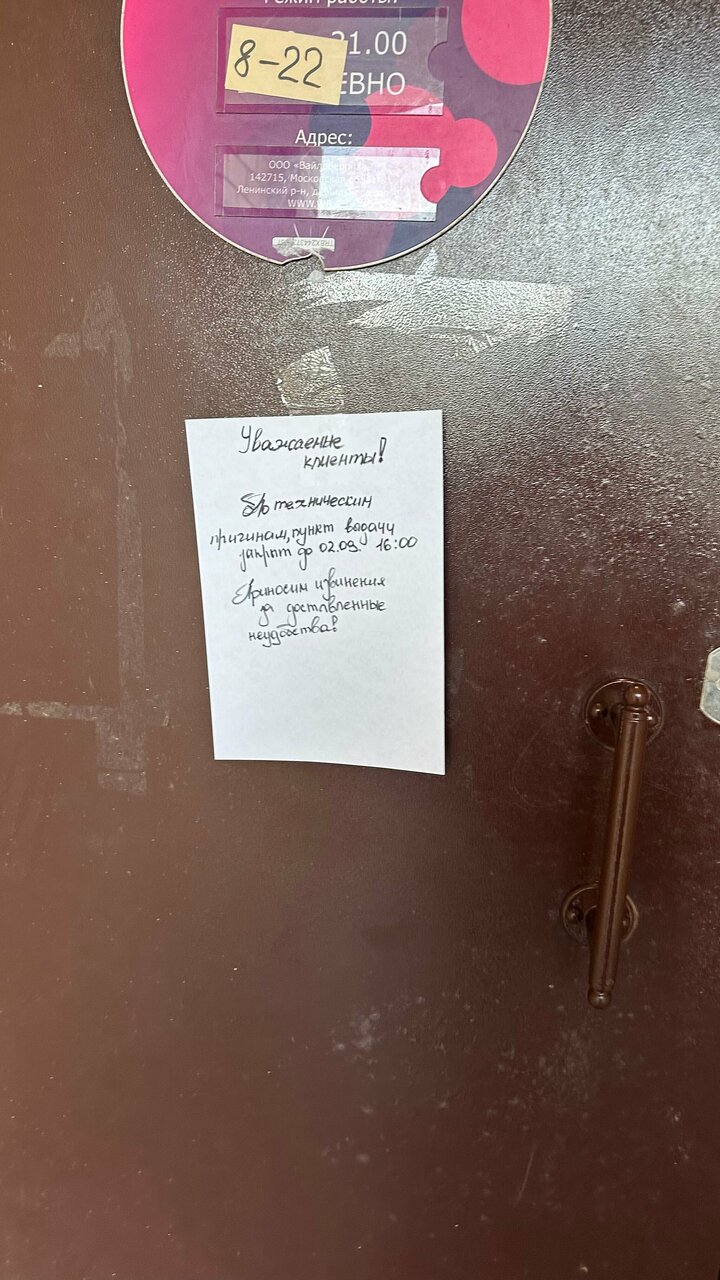 Режим работы
8-22
21.00
ЕВНО
Адрес:
ООО
142715,
Ленинский р-н,
Уважаемые
клиенты!
По техническим
причинам, пункт выдачи
закрыт до 02.09. 16:00
Приносим извинения
за доставленные
неудобства!